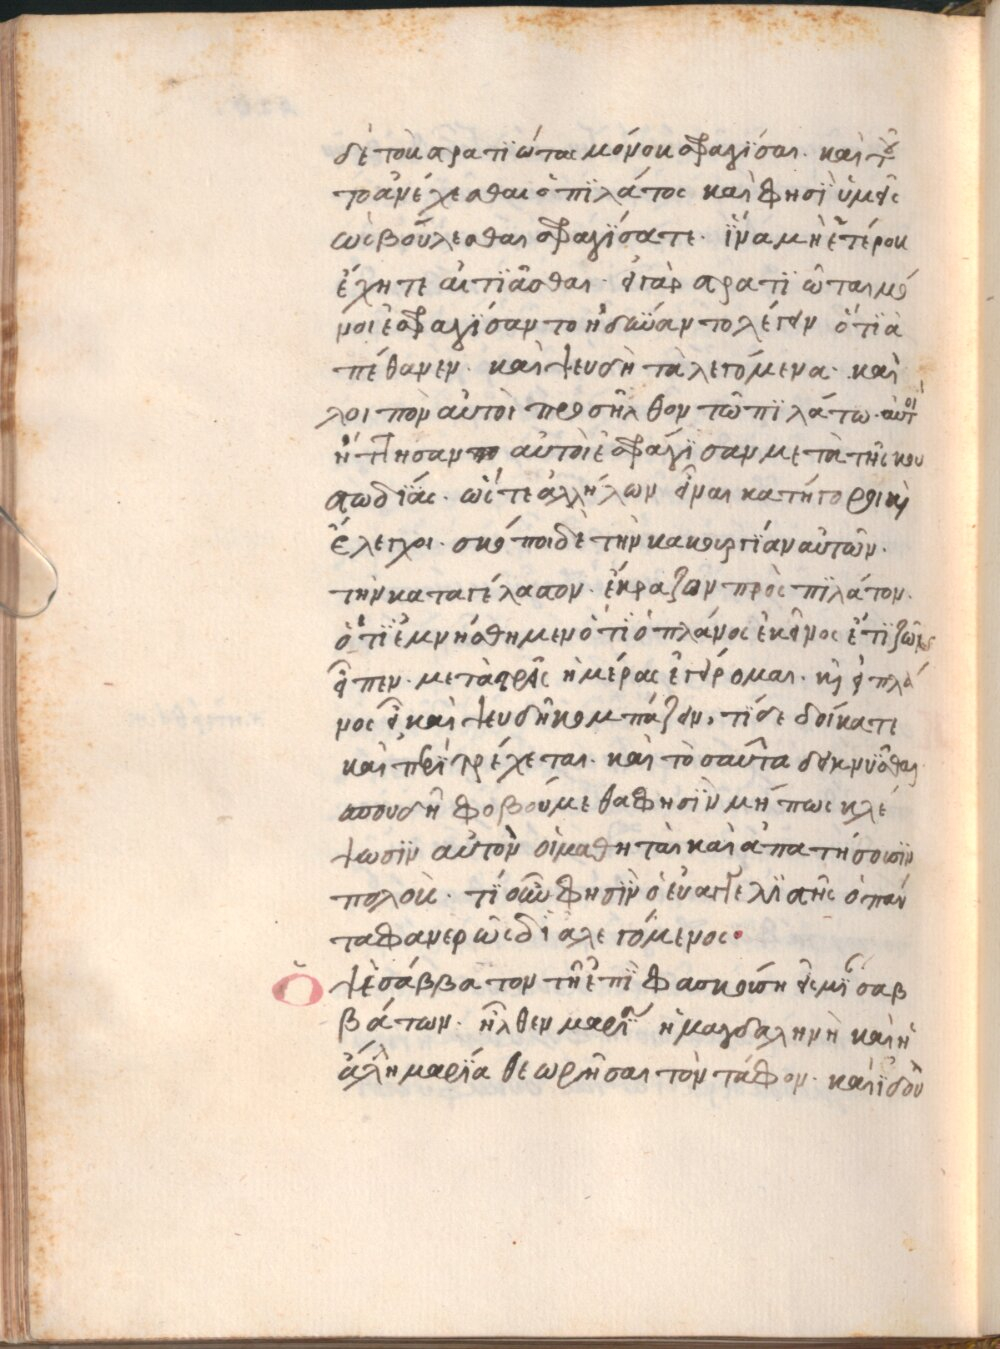 δὲ τοὺς στρατϊώτας μόνους σφραγίσαι. καὶ τοῦ
το ἀνέχεσθαι ὁ πϊλάτος καὶ φησὶ ὑμεῖς
ὡς βούλεσθαι σφραγίσατε. ἵνα μὴ ἑτέρους
ἔχητε αἰτιᾶσθαι. εἰ γὰρ στρατϊῶται μό
νοι ἐσφραγίσαντο ἠδύναντο λέγειν ὅτι ἀ
πέθανεν. καὶ ψευδῆ τὰ λεγόμενα. καὶ
λοιπὸν αὐτοὶ προσῆλθον τῶ πϊλάτω. αὐτοὶ
ἠτήσαντο αὐτοὶ ἐσφράγισαν μετὰ τῆς κου
στωδίας. ὥστε ἀλλήλων εἶναι κατήγοροι καὶ
ἔλεγχοι. σκόποι δὲ τὴν κακουργίαν αὐτῶν.
τὴν καταγέλαστον. ἔκραζον πρὸς πϊλάτον.
ὅτι ἐμνήσθημεν ὅτι ὁ πλάνος ἐκεῖνος ἔτι ζῶν
εἶπεν. μετὰ τρεῖς ἡμέρας ἐγείρομαι. καὶ εἰ πλά
νος εἶ καὶ ψευδῆ κομπάζειν, τί δεδοίκατε
καὶ περιτρέχεται. καὶ τοσαῦτα δεικνῦσθαι
σπουδῆ φοβούμεθα φησὶν μήπως κλέ
ψωσιν αὐτὸν οἱ μαθηταὶ καὶ ἀπατήσουσιν
πολούς. τί οὖν φησὶν ὁ εὐαγγελιστῆς ὁ πάν
τα φανερῶς διαλεγόμενος.
Ὀψὲ σάββατον τῆ ἐπιφωσκούση εἰς μίαν σαβ
βάτων. ἦλθεν μαρία ἡ μαγδαληνὴ καὶ ἡ
ἄλλη μαρία θεωρῆσαι τὸν τάφον. καὶ ἰδοὺ